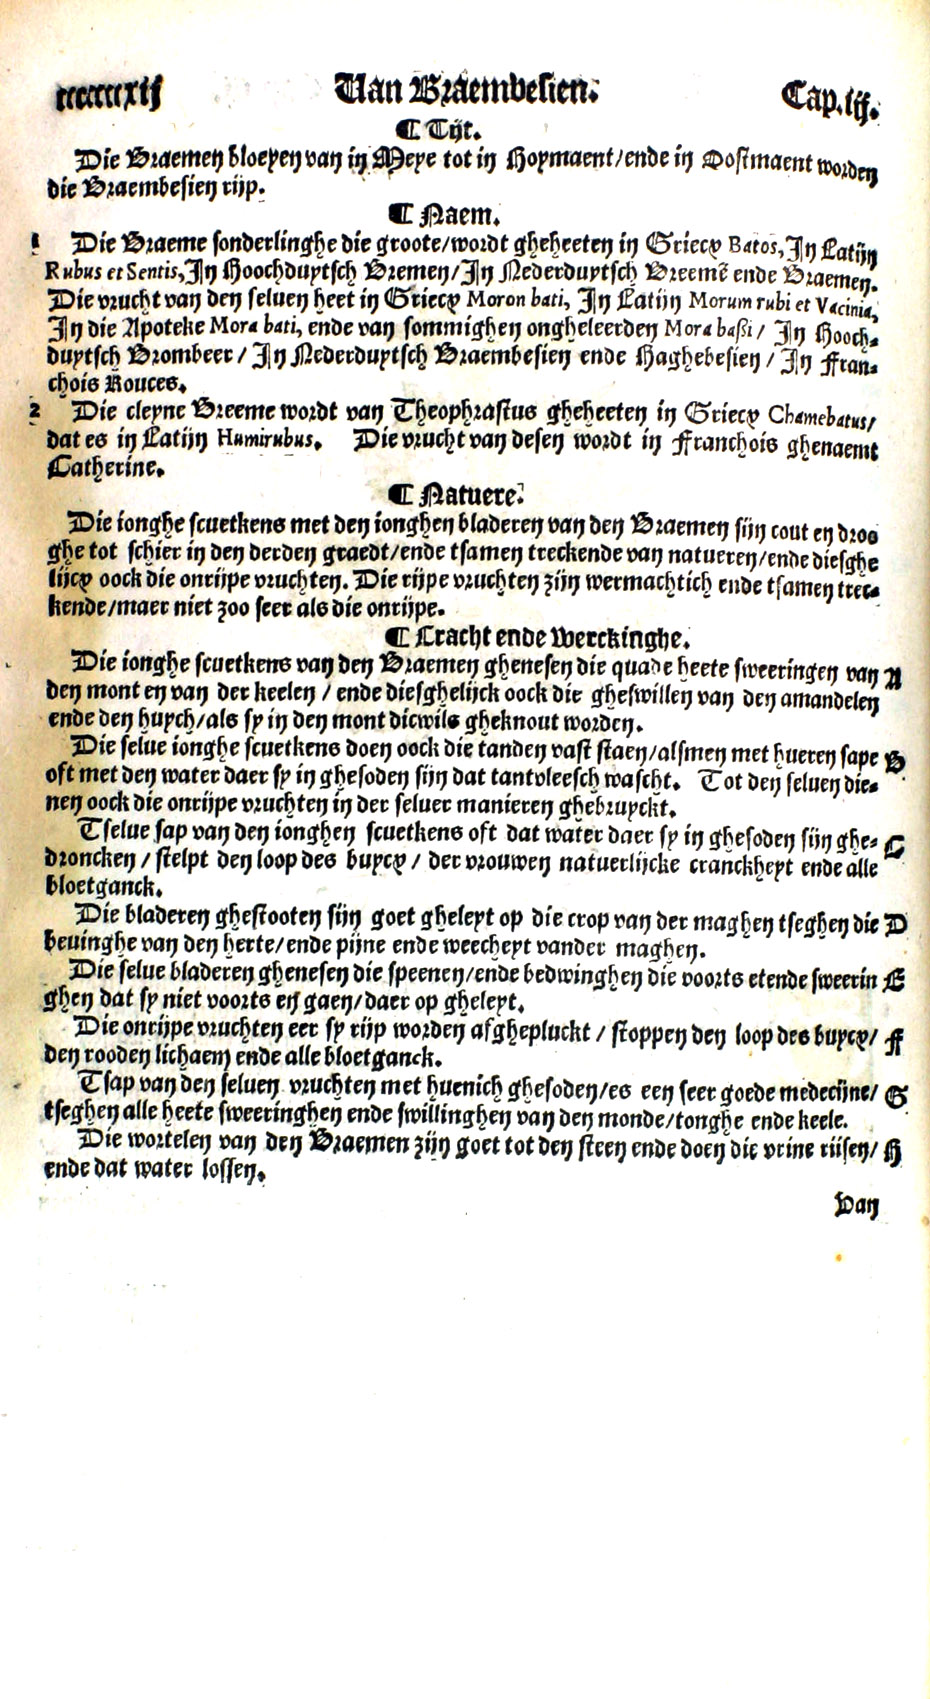 ccccccxij Van Braembesien. Cap.lij.
¶ Tijt.
Die Braemen bloeyen van in Meye tot in Hoymaent/ende in Oostmaent worden
die Braembesien rijp.
¶ Naem.
1 Die Braeme sonderlinghe die groote/wordt gheheeten in Griecx Batos, In Latijn
Rubus et Sentis, In Hoochduytsch Bremen/In Nederduytsch Breemē ende Braemen.
Die vrucht van den seluen heet in Griecx Moron bati, In Latijn Morum rubi et Vacinia,
In die Apoteke Mora bati, ende van sommighen ongheleerden Mora baßi/ In Hooch-
duytsch Brombeer/ In Nederduytsch Braembesien ende Haghebesien/ In Fran-
chois Rouces.
2 Die cleyne Breeme wordt van Theophrastus gheheeten in Griecx Chamebatus/
dat es in Latijn Humirubus. Die vrucht van desen wordt in Franchois ghenaemt
Catherine.
¶ Natuere.
Die ionghe scuetkens met den ionghen bladeren van den Braemen sijn cout en droo
ghe tot schier in den derden graedt/ende tsamen treckende van natueren/ende diesghe
lijcx oock die onrijpe vruchten. Die rijpe vruchten zijn wermachtich ende tsamen trec-
kende/maer niet zoo seer als die onrijpe.
¶ Cracht ende Werckinghe.
Die ionghe scuetkens van den Braemen ghenesen die quade heete sweeringen van A
den mont en van der keelen / ende diesghelijck oock die gheswillen van den amandelen
ende den huych/als sy in den mont dicwils gheknout worden.
Die selue ionghe scuetkens doen oock die tanden vast staen/alsmen met hueren sape B
oft met den water daer sy in ghesoden sijn dat tantvleesch wascht. Tot den seluen die-
nen oock die onrijpe vruchten in der seluer manieren ghebruyckt.
Tselue sap van den ionghen scuetkens oft dat water daer sy in ghesoden sijn ghe- C
droncken / stelpt den loop des buycx / der vrouwen natuerlijcke cranckheyt ende alle
bloetganck.
Die bladeren ghestooten sijn goet gheleyt op die crop van der maghen tseghen die D
beuinghe van den herte/ende pijne ende weecheyt vander maghen.
Die selue bladeren ghenesen die speenen/ende bedwinghen die voorts etende sweerin E
ghen dat sy niet voorts en gaen/daer op gheleyt.
Die onrijpe vruchten eer sy rijp worden afghepluckt / stoppen den loop des buycx/ F
den rooden lichaem ende alle bloetganck.
Tsap van den seluen vruchten met huenich ghesoden/es een seer goede medecijne/ G
tseghen alle heete sweeringhen ende swillinghen van den monde/tonghe ende keele.
Die wortelen van den Braemen zijn goet tot den steen ende doen die vrine rijsen/ H
ende dat water lossen.
Van